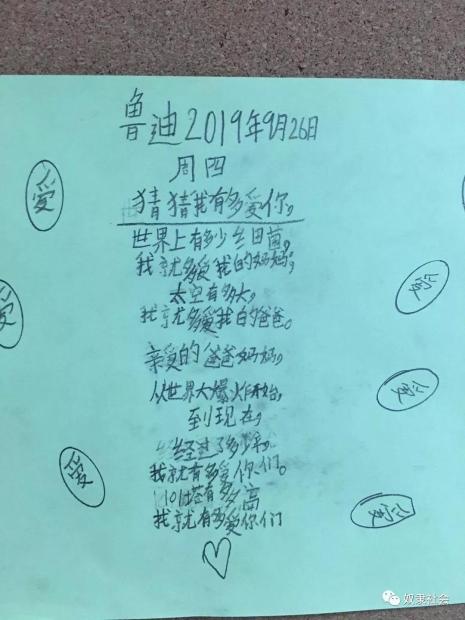 鲁迪2019年9月26日
周四
猜猜我有多爱你,
世界上有多少细菌,
我就多爱我的妈妈,
太空有多大,
我就多爱我的爸爸。
亲爱的爸爸妈妈,
从世界大爆炸开始,
到现在,
经过了多少年,
我就有多爱你们。
101塔有多高
我就有多爱你们
爱
爱
爱
爱
爱
爱
奴隶社会